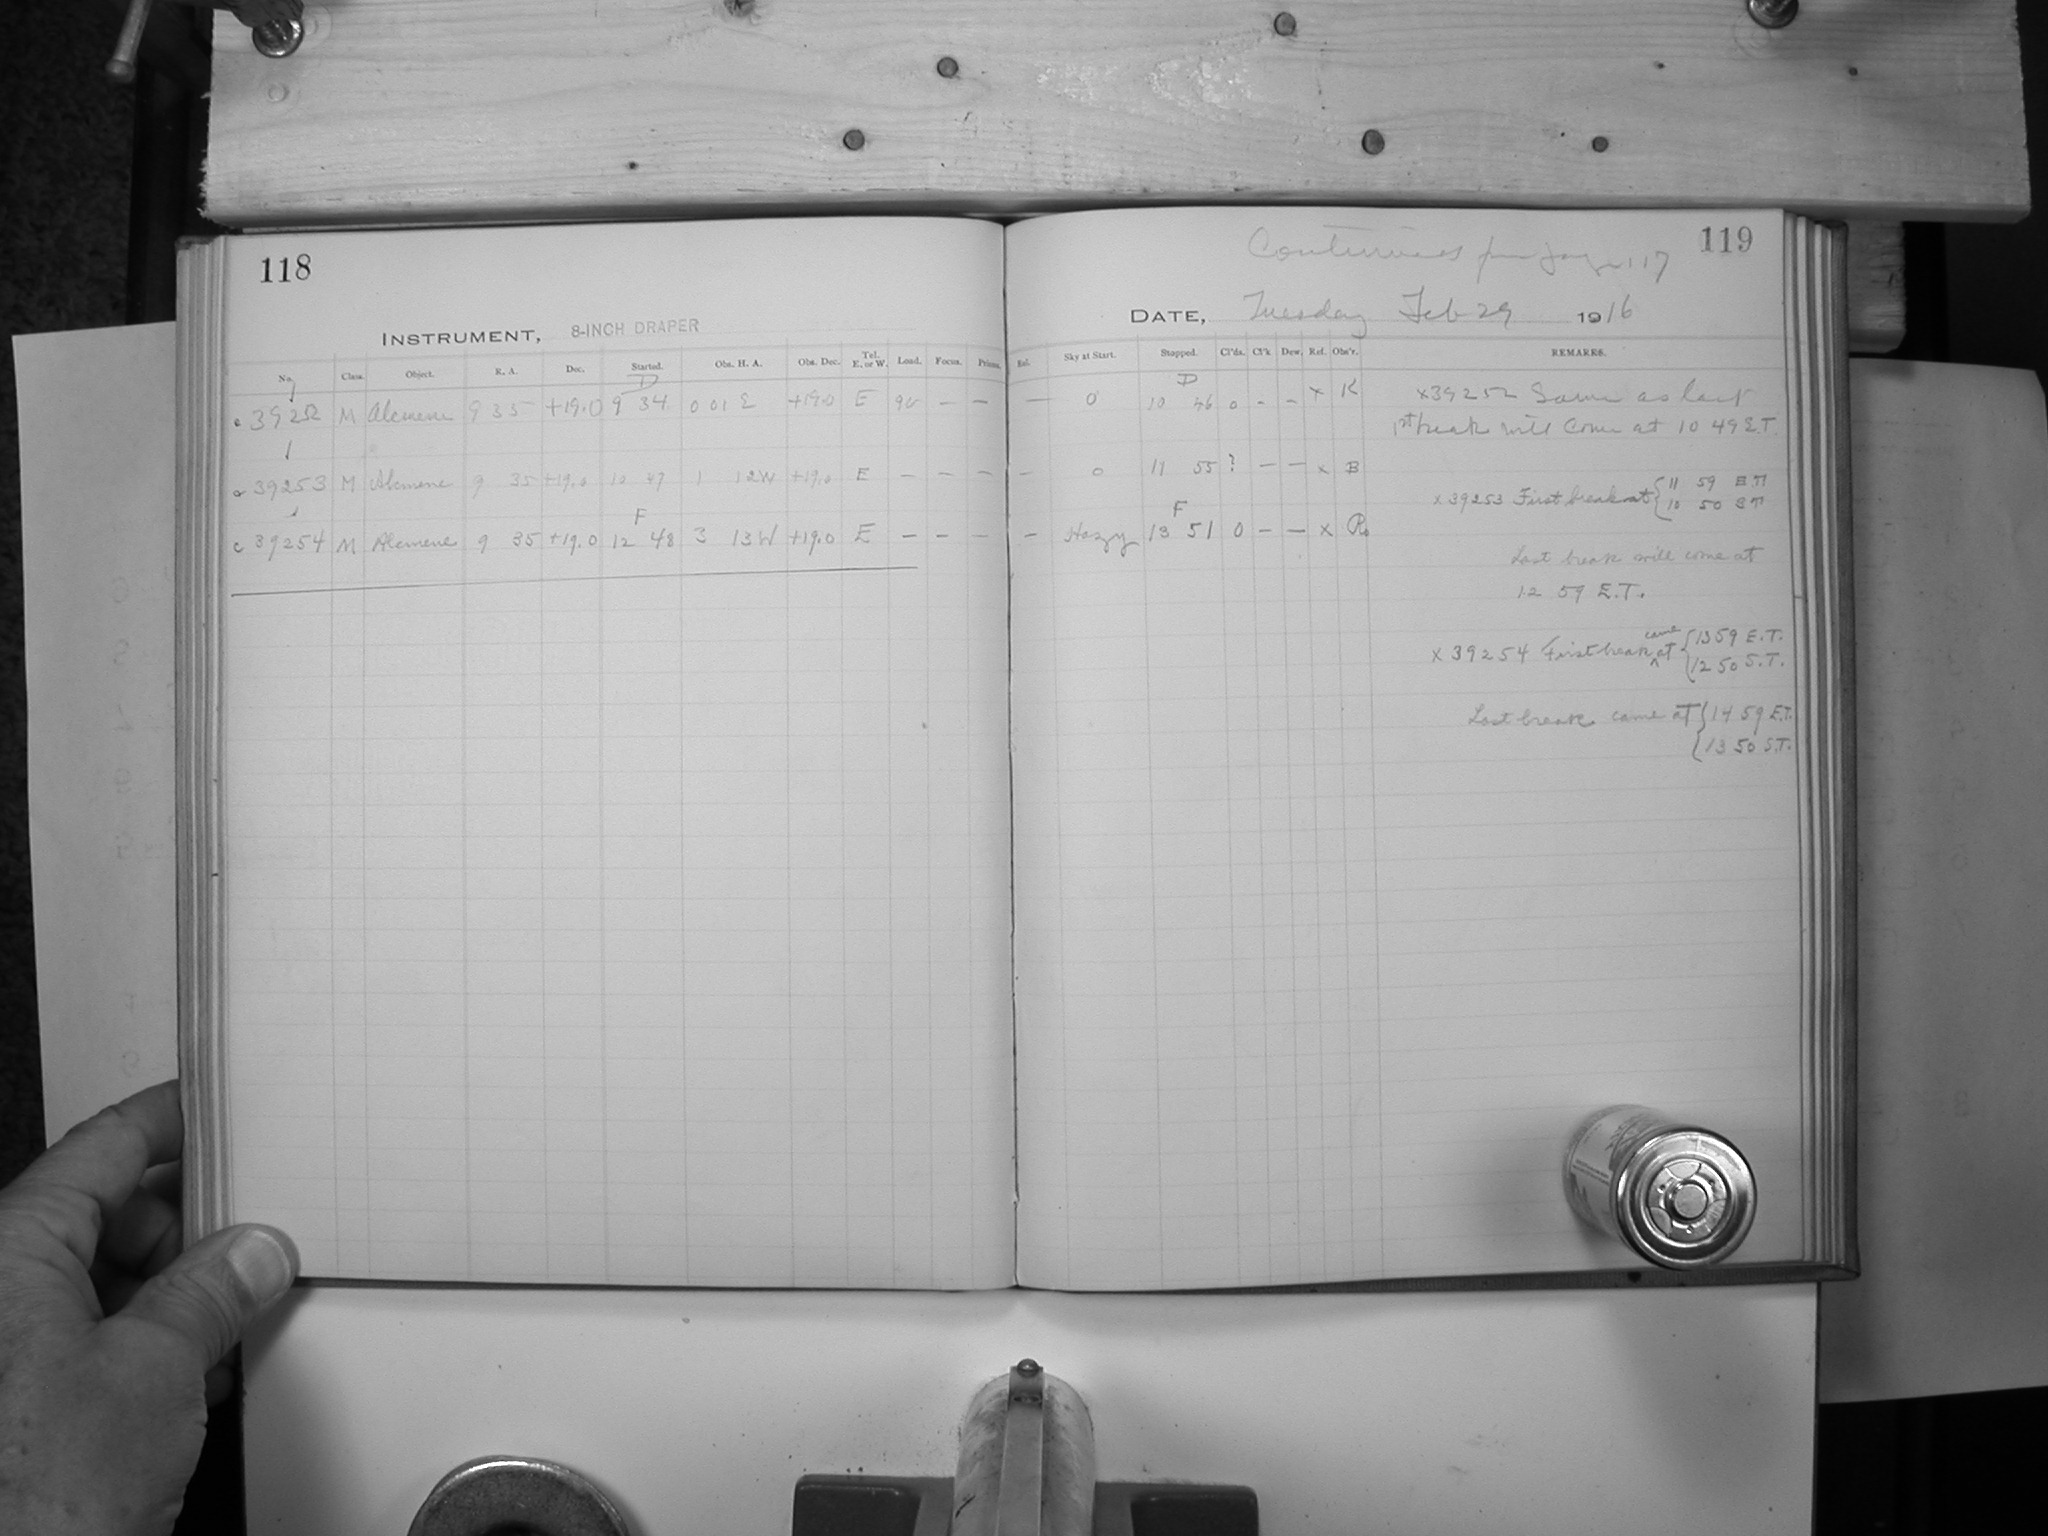 118
INSTRUMENT, 8-INCH DRAPER
No. Class. Object. R. A. Dec. Started. Obs. H. A. Obs. Dec. Tel. E. or W. Load. Focus. Prisms.
D
39252 M Alcmene 9 35 +19.0 9 34 0 01 E +19.0 E 90 – –
39253 M Alcmene 9 35 +19.0 10 47 1 12W +19.0 E – – –
F
c 39254 M Alcmene 9 35 +19.0 12 48 3 13W +19.0 E – – –
119
Continued from page 117
DATE, Tuesday Feb 29 1916
Sky at Start. Stopped. Cl'ds. Cl'k Dew. Ref. Obs'r. REMARKS.
D
— 0 10 46 0 – – x K
– 0 11 55 ? – – x B
F
– Hazy 13 51 0 – – x Ro
x39252 Same as last
1st break will come at 10 49 E.T.
x 39253 First break at { 11 59 E.T.
10 50 S.T.
Last break will come at
12 59 E.T.
x 39254 First break came at { 13 59 E.T.
12 50 S.T.
Last break came at { 14 59 E.T.
13 50 S.T.